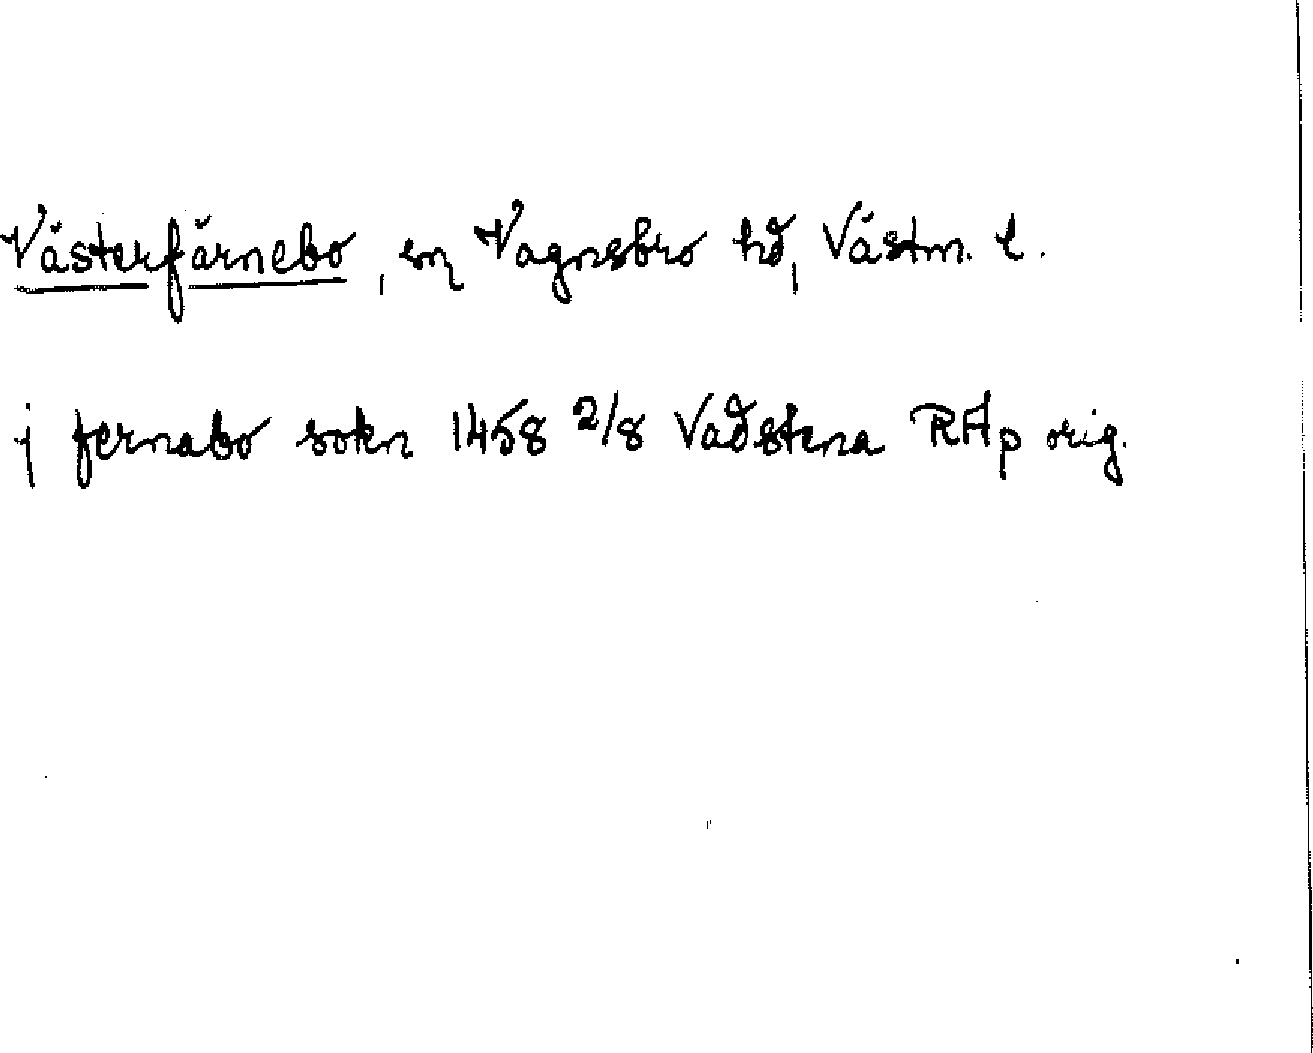 Västerfärnebo, sn Vagnsbro hd, Västm. l.
j fernabo sokn 1458 2/8 Vadstena RAp orig.